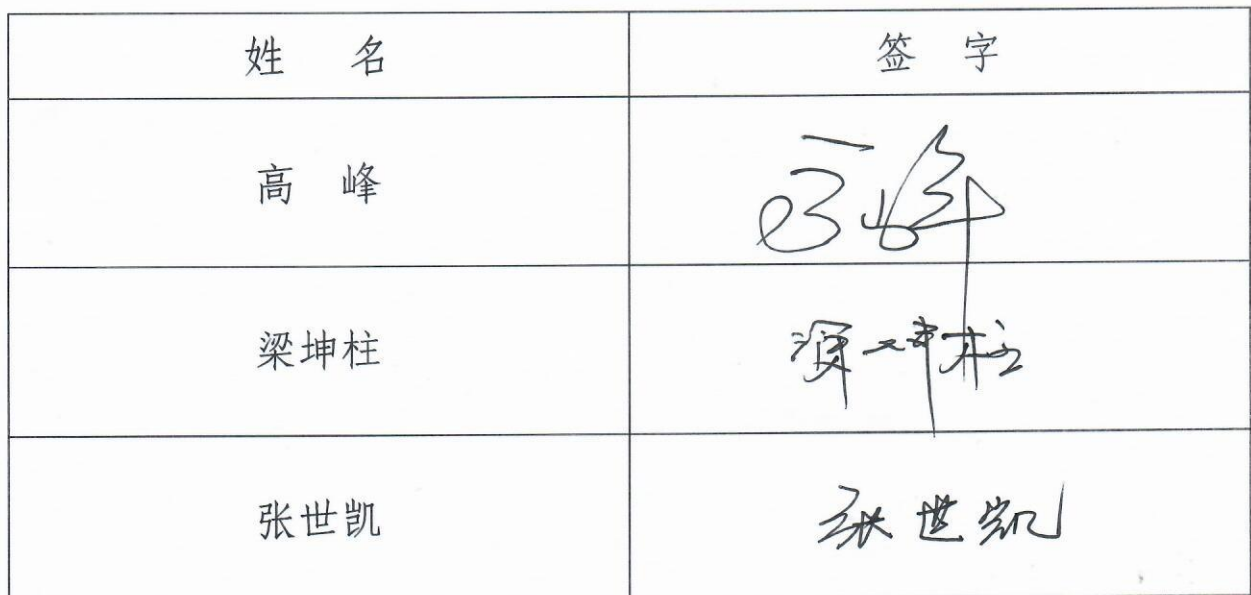 姓 名 签 字
高 峰 高峰
梁坤柱 梁坤柱
张世凯 张世凯